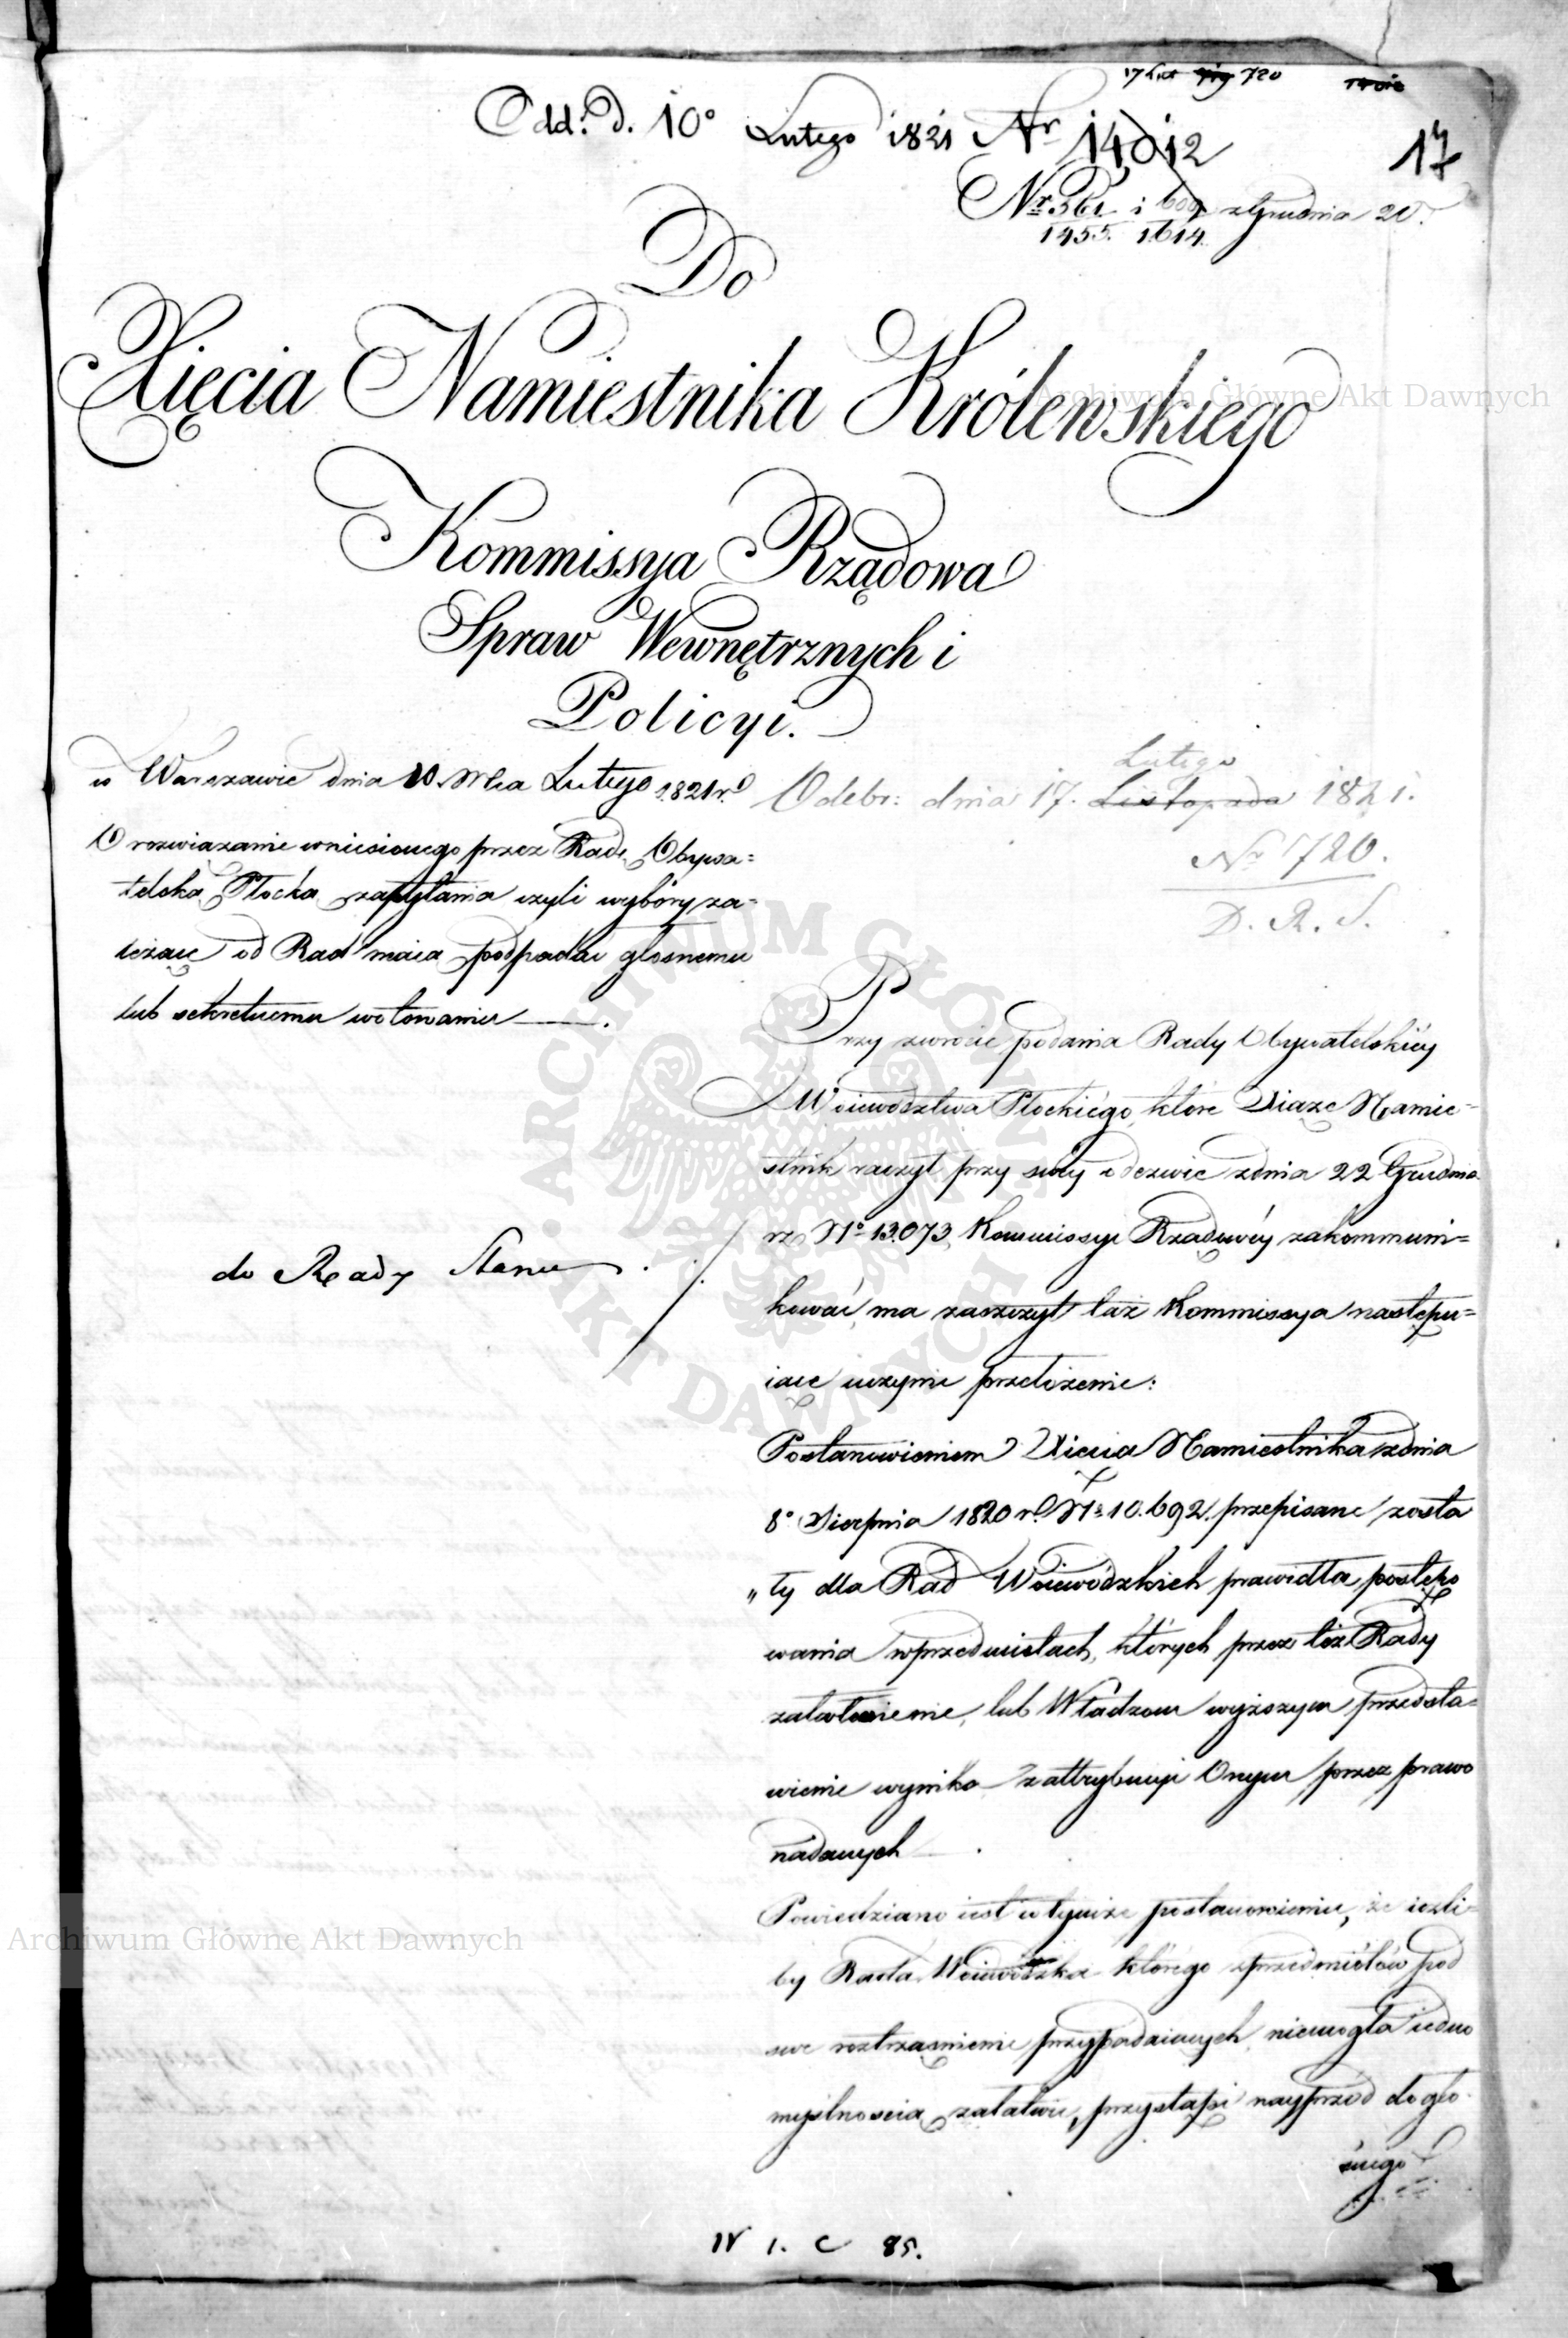 17 Lut 720
Odd: d. 10° Lutego 1821 Nr 14012
17
Nr 561 i 609 z Grudnia 20.
1455. 1614.
Do
Xięcia Namiestnika Królewskiego
Kommissya Rządowa
Spraw Wewnętrznych i
Policyi.
w Warszawie dnia 10. Mca Lutego 1821 r.
Odebr: dnia 17. Listopada Lutego 1821.
Nr 720.
D. R. S.
O rozwiązanie wniesionego przez Radę Obywa=
telską Płocką zapytania czyli wybóry za=
leżące od Rad maią podpadać głosnemu
lub sekretnemu wotowaniu.
do Rady Stanu.
Przy zwrocie podania Rady Obywatelskiéy
Woiewództwa Płockiégo, które Xiąże Namie=
stnik raczył przy swéy odezwie zdnia 22 Grudnia
rz No 13.073 Kommissyi Rządowéy zakommuni=
kować, ma zaszczyt taż Kommissya nastepu=
iące uczynić przełożenie:
Postanowieniem Xięcia Namiestnika zdnia
8° Sierpnia 1820 r. No 10.692. przepisane zosta
„ły dla Rad Woiewódzkich prawidła postępo
wania wprzedmiotach, których przez też Rady
załatwienie, lub Władzom wyższym przedsta=
wienie wynika z attrybucyi Onym przez prawo
nadanych.
Powiedziano iest w tymże postanowieniu, że ieżli=
by Rada Woiewódzka którego zprzedmiótów pod
swe roztrząśnienie przypadaiących, niemogła iedno
myślnością załatwić, przystąpi nayprzod do gło
śnego
IV 1. C 85.
Archiwum Główne Akt Dawnych
Archiwum Główne Akt Dawnych
ARCHIWUM GŁÓWNE AKT DAWNYCH